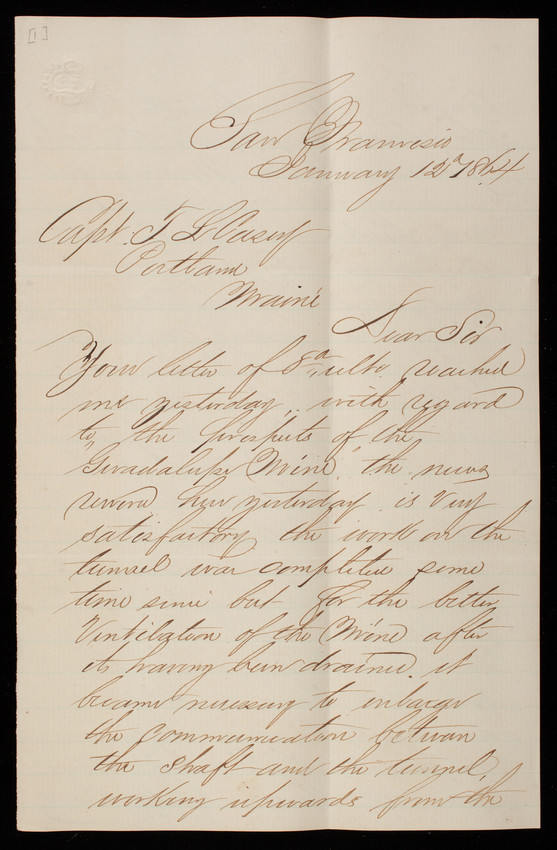 [1]
San Francisco
January 12th 1864
Capt. T L Casey
Portland
Maine
Dear Sir
Your letter of 8th ulto. reached
me yesterday, with regard
to, the prospects of the
"Guadalupe Mine" the news
received here yesterday is very
satisfactory the work on the
tunnel was completed some
time since but for the better
Ventilation of the Mine after
its having been drained. it
became necessary to enlarge
the communication between
the shaft and the tunnel,
working upwards from the